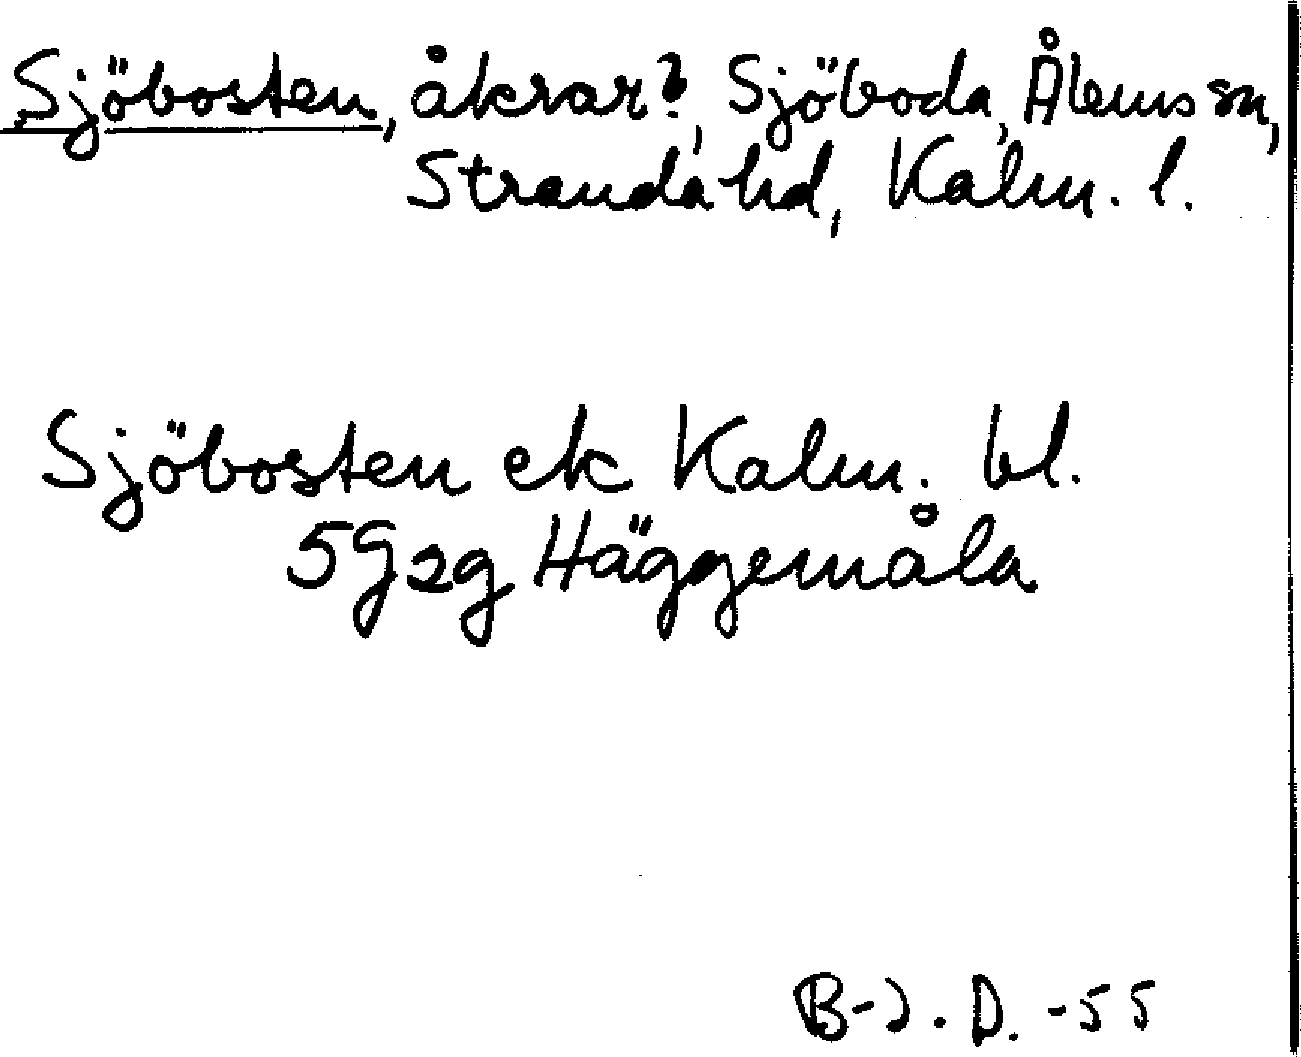 Sjöbosten, åkrar?, Sjöboda, Ålems sn,
Stranda hd, Kalm. l.
Sjöbosten ek Kalm. bl.
5G2g Häggemåla
B-J. D. -55